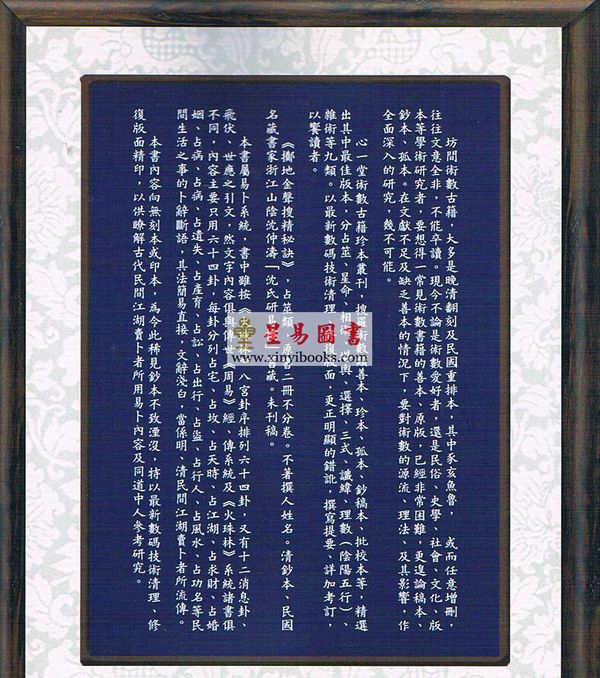 坊間術數古籍，大多是晚清翻刻及民國重排本，其中豕亥魚魯，或而任意增刪，
往往文意全非，不能卒讀。現今不論是術數愛好者，還是民俗、史學、社會、文化、版
本等學術研究者，要想得一常見術數書籍的善本、原版，已經非常困難，更遑論稿本、
鈔本、孤本。在文獻不足及缺乏善本的情況下，要對術數的源流、理法、及其影響，作
全面深入的研究，幾不可能。
心一堂術數古籍珍本叢刊，搜羅術數善本、珍本、孤本、鈔稿本、批校本等，精選
出其中最佳版本，分占筮、星命、相術、堪輿、選擇、三式、讖緯、理數（陰陽五行）、
雜術等九類。以最新數碼技術清理、修復版面，更正明顯的錯訛，撰寫提要、詳加考訂，
以饗讀者。
《擲地金聲搜精秘訣》，占筮類，原書二冊不分卷。不著撰人姓名。清鈔本、民國
名藏書家浙江山陰沈仲濤「沈氏研易樓」舊藏。未刊稿。
本書屬易卜系統，書中雖按《 》八宮卦序排列六十四卦，又有十二消息卦、
飛伏、世應之引文，然文字內容俱與傳世《周易》經、傳系統及《火珠林》系統諸書俱
不同，內容主要只用六十四卦，每卦分列占宅、占坟、占天時、占江湖、占求財、占婚
姻、占病、占遺失、占產育、占訟、占出行、占盜、占行人、占風水、占功名等民
間生活之事的卜辭斷語，其法簡易直接，文辭淺白，當係明、清民間江湖賣卜者所流傳。
本書內容向無刻本或印本，為令此稀見鈔本不致湮沒，特以最新數碼技術清理、修
復版面精印，以供瞭解古代民間江湖賣卜者所用易卜內容及同道中人參考研究。
星易圖書
www.xinyibooks.com